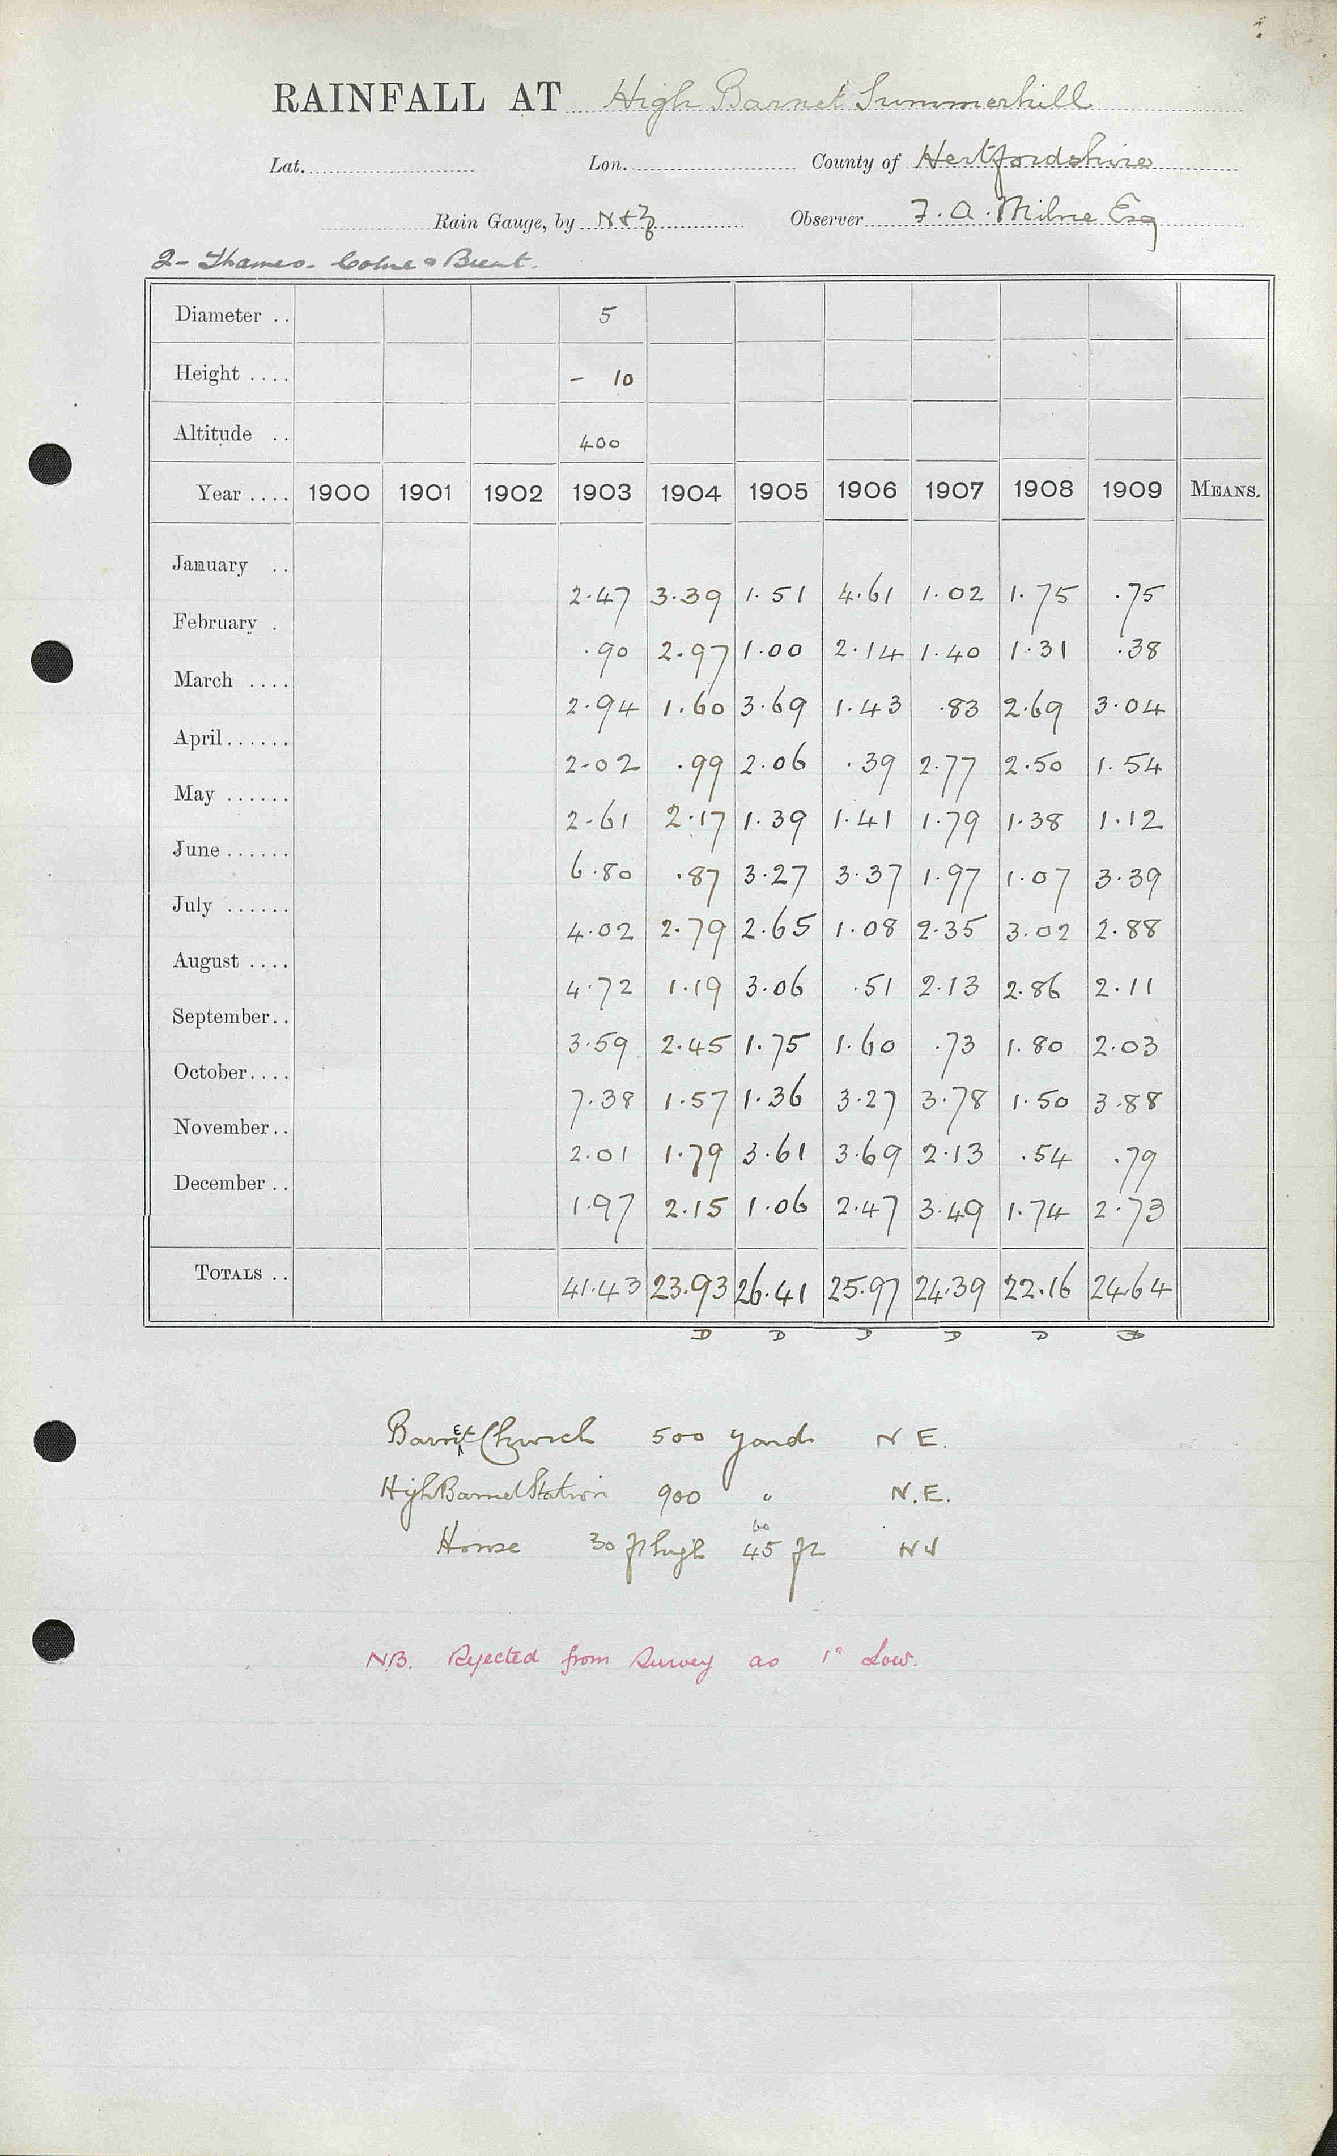 RAINFALL AT High Barnet Summerhill
Lat. Lon. County of Hertfordshire
Rain Gauge, by N & Z Observer F. A. Milne Esq
2 - Thames - Colne & Brent.
Diameter .. 5
Height .... - 10
Altitude .. 400
Year .... 1900 1901 1902 1903 1904 1905 1906 1907 1908 1909 MEANS.
January .. 2.47 3.39 1.51 4.61 1.02 1.75 .75
February . .90 2.97 1.00 2.14 1.40 1.31 .38
March .... 2.94 1.60 3.69 1.43 .83 2.69 3.04
April...... 2.02 .99 2.06 .39 2.77 2.50 1.54
May ...... 2.61 2.17 1.39 1.41 1.79 1.38 1.12
June...... 6.80 .87 3.27 3.37 1.97 1.07 3.39
July ...... 4.02 2.79 2.65 1.08 2.35 3.02 2.88
August .... 4.72 1.19 3.06 .51 2.13 2.86 2.11
September.. 3.59 2.45 1.75 1.60 .73 1.80 2.03
October.... 7.38 1.57 1.36 3.27 3.78 1.50 3.88
November.. 2.01 1.79 3.61 3.69 2.13 .54 .79
December .. 1.97 2.15 1.06 2.47 3.49 1.74 2.73
TOTALS .. 41.43 23.93 26.41 25.97 24.39 22.16 24.64
D D D D D D
Barnet Church 500 yards N E.
High Barnet Station 900 " N.E.
House 30 ft high 45 ft
60
NB. Rejected from Survey as 1" Low.